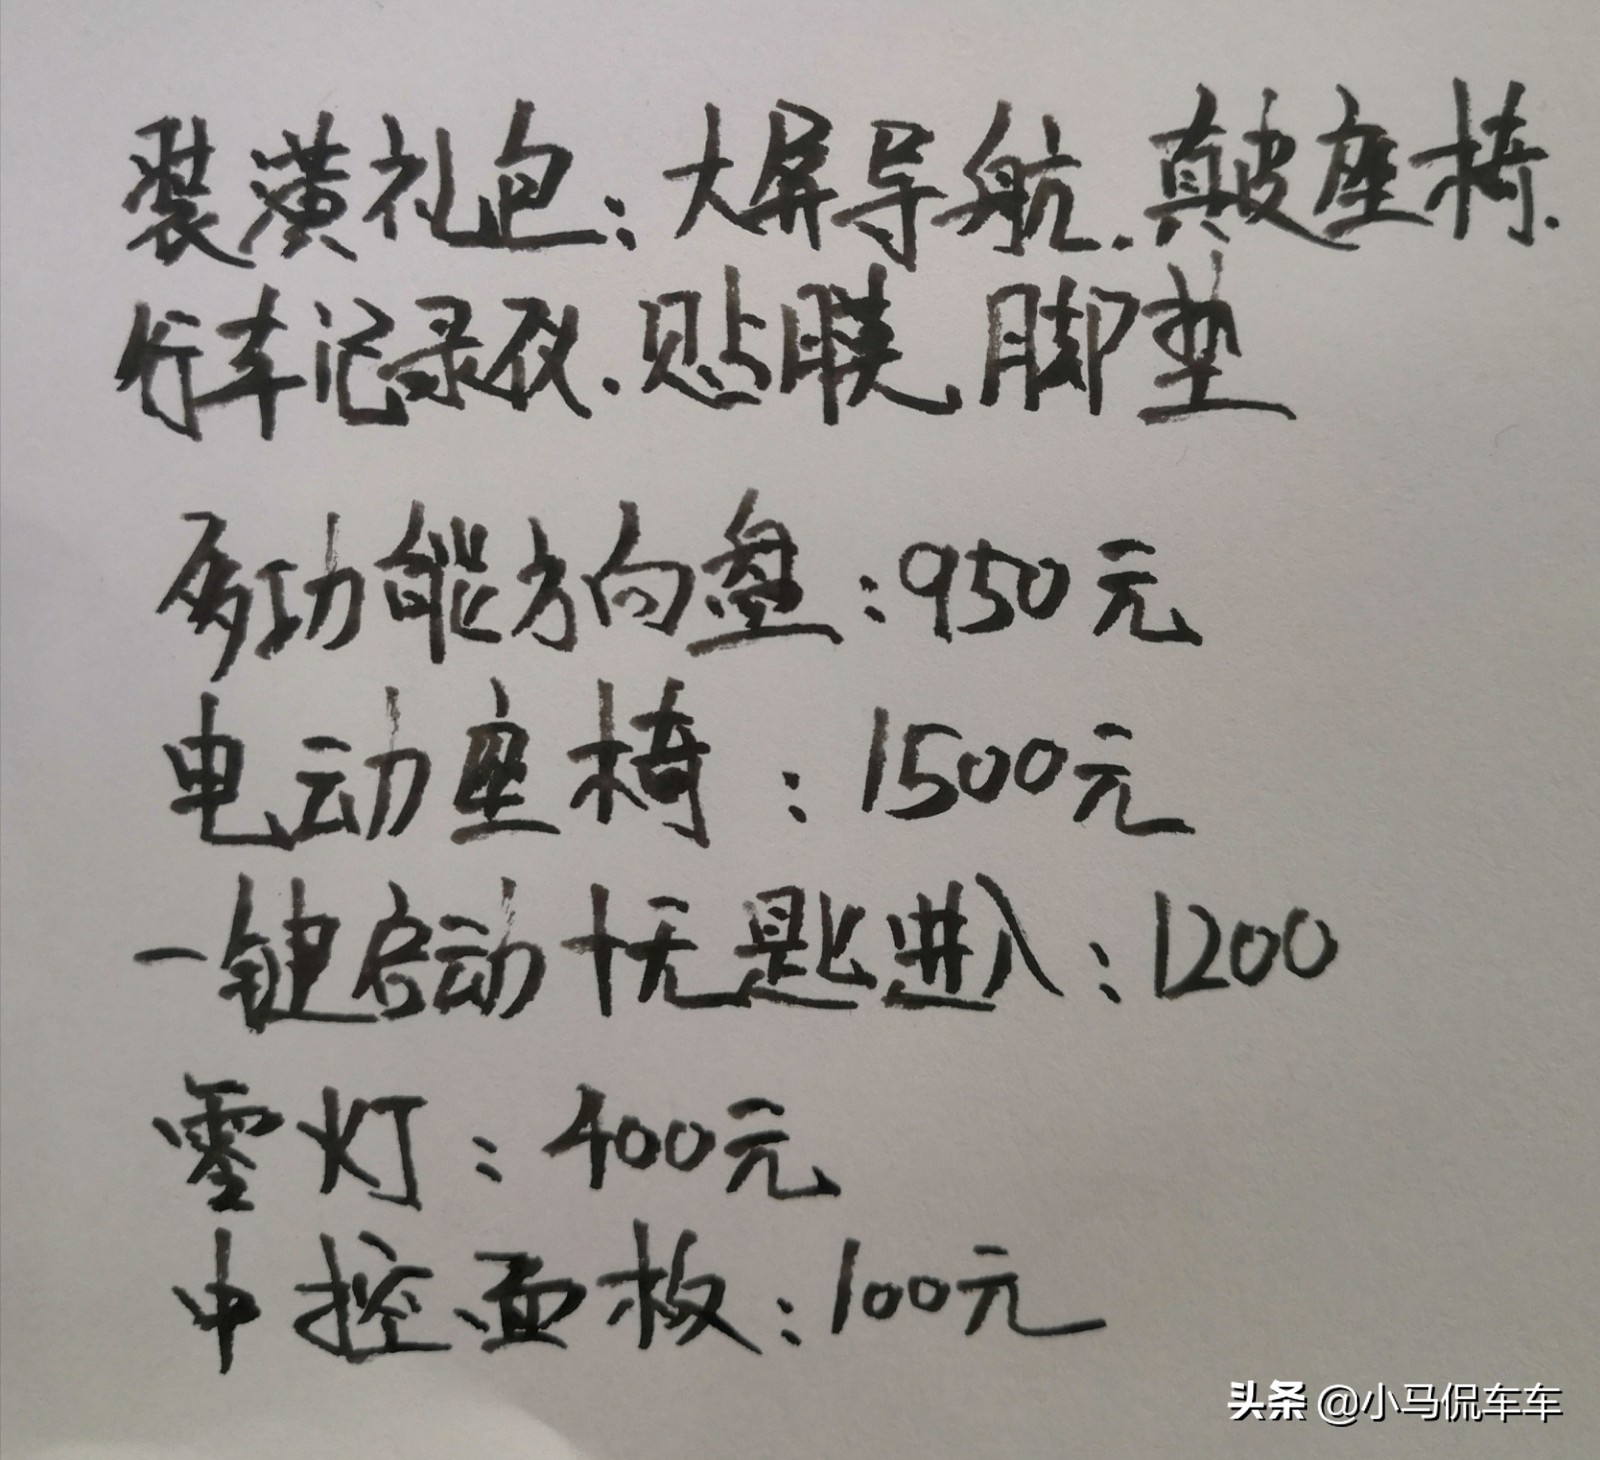 装潢礼包：大屏导航.真皮座椅.
行车记录仪.贴膜.脚垫
多功能方向盘：950元
电动座椅：1500元
一键启动+无匙进入：1200
雾灯：400元
中控面板：100元
头条 @小马侃车车